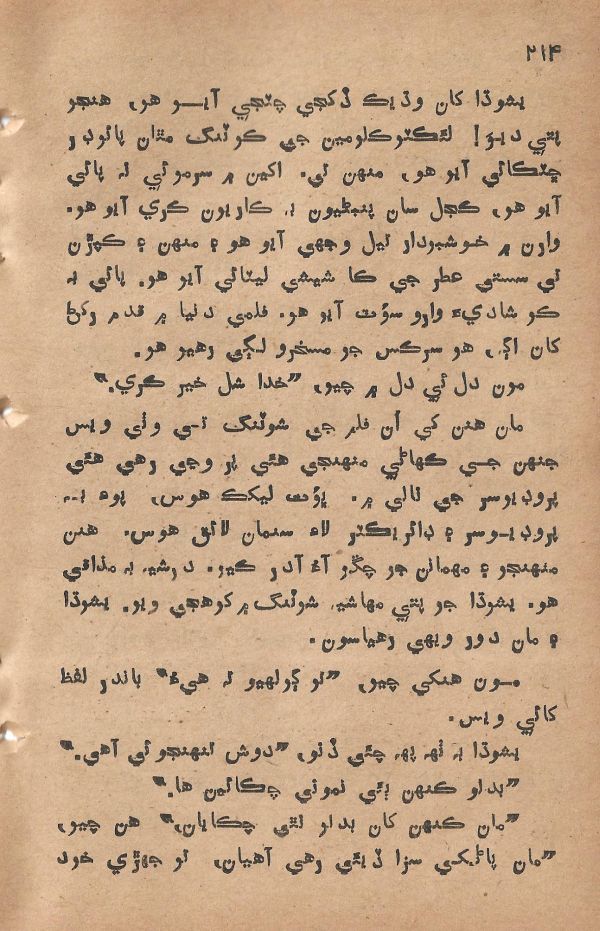 ۲۱۴
يشوڌا کان وڌيڪ ڏکجي چٽجي آيـو هو، هنجو
پتي ديو! لئڪٽوڪلومين جي ڪوٽنگ مٿان پائوڊر
ڇٽڪائي آيو هو، منهن تي. اکين ۾ سرموئي نه پائي
آيو هو، ڪجل سان پنبڻيون به ڪاريون ڪري آيو هو.
وارن ۾ خوشبودار تيل وجهي آيو هو ۽ منهن ۽ ڪپڙن
تي سستي عطر جي ڪا شيشي ليٽائي آيو هو. پائي به
ڪو شاديءَ وارو سؤٽ آيو هو. فلمي دنيا ۾ قدم رکڻ
کان اڳ، هو سرڪس جو مسخرو لڳي رهيو هو.
مون دل ئي دل ۾ چيو، ”خدا شل خير ڪري.“
مان هنن کي اُن فلم جي شوٽنگ تـي وٺي ويس
جنهن جـي ڪهاڻي منهنجي هئي پر وڃي رهي هئي
پروڊيوسر جي نالي ۾. ڀؤت ليکڪ هوس، پوءِ بـه
پروڊيـوسر ۽ ڊائريڪٽر لاءِ سنمان لائق هوس. هنن
منهنجو ۽ مهمانن جو چڱو آءُ آدر ڪيو. درشيه به مذاقي
هو. يشوڌا جو پتي مهاشيه شوٽنگ ۾ کوهجي ويو. يشوڌا
۽ مان دور ويهي رهياسون.
مـون هنکي چيو، ”تو ڳولهيو نه هيءُ“ باندر لفظ
کائي ويس.
يشوڌا به ٺهه پهه چئي ڏنو، ”دوش تنهنجوئي آهي.“
”بدلو ڪنهن ٻئي نموني چڪائين ها.“
”مان ڪنهن کان بدلو نٿي چڪايان،“ هن چيو،
”مان پاڻکي سزا ڏيئي رهي آهيان، تو جهڙي خود